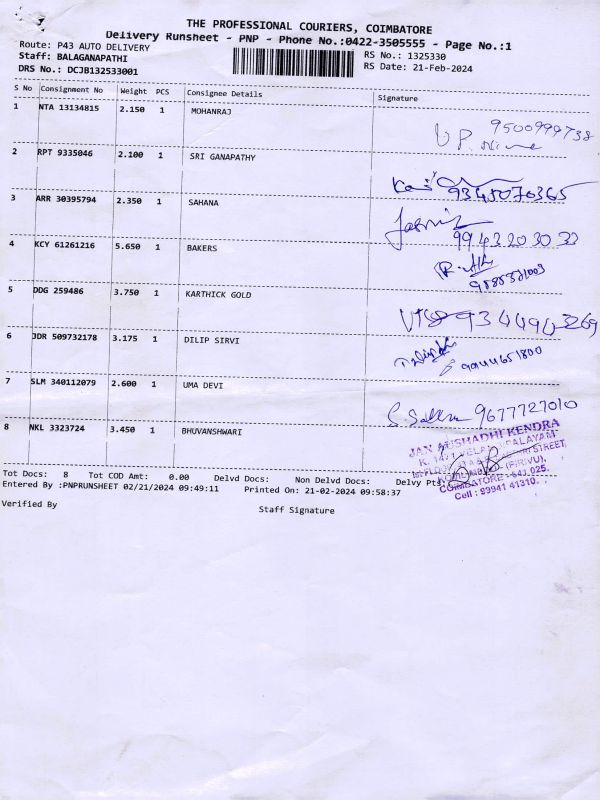 THE PROFESSIONAL COURIERS, COIMBATORE
Delivery Runsheet - PNP - Phone No.:0422-3505555 - Page No.:1
Route: P43 AUTO DELIVERY
RS No.: 1325330
Staff: BALAGANAPATHI
RS Date: 21-Feb-2024
DRS No.: DCJB132533001
S No Consignment No Weight PCS Consignee Details Signature
1 NTA 13134815 2.150 1 MOHANRAJ
9500999738
2 RPT 9335046 2.100 1 SRI GANAPATHY
9345070365
3 ARR 30395794 2.350 1 SAHANA
9943203033
4 KCY 61261216 5.650 1 BAKERS
5 DDG 259486 3.750 1 KARTHICK GOLD
6 JDR 509732178 3.175 1 DILIP SIRVI
9944651800
7 SLM 340112079 2.600 1 UMA DEVI
9677727010
8 NKL 3323724 3.450 1 BHUVANSHWARI
JAN AUSHADHI KENDRA
COIMBATORE - 641 025.
Cell : 99941 41310.
Tot Docs: 8 Tot COD Amt: 0.00 Delvd Docs: Non Delvd Docs: Delvy Pts:
Entered By :PNPRUNSHEET 02/21/2024 09:49:11 Printed On: 21-02-2024 09:58:37
Verified By Staff Signature